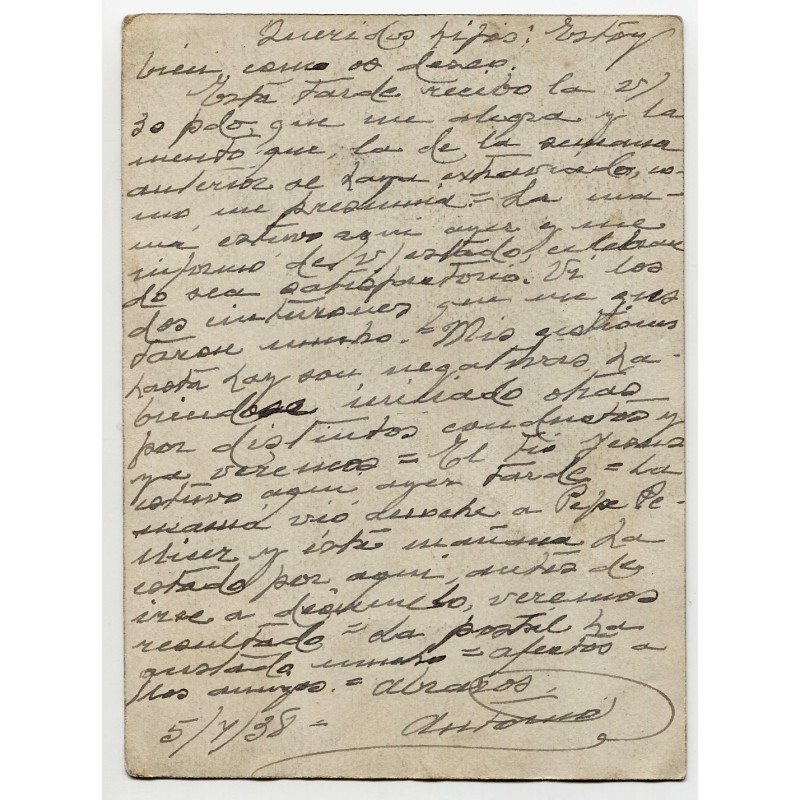 Queridos hijos: Estoy
bien como os deseo.
Esta tarde recibo la v/
30 pdo, que me alegra y la
mento que, la de la semana
anterior se haya extraviado, co-
mo me presumia = La ma-
má estuvo aqui ayer y me
informó de v/ estado, celebran
do sea satisfactorio. Vi los
dos que me gus
taron mucho = Mis gestiones
hasta hoy son negativas ha-
biendose iniciado otras
por distintos conductos y
ya veremos = El tio Jesus
estuvo aqui ayer tarde = La
mamá vió anoche a Pepe Pe-
llicer y esta mañana ha
estado por aqui, antes de
irse a, veremos
resultado = La postal ha
gustado mucho = afectos a
los amigos = abrazos.
Antonio
5/7/38 =